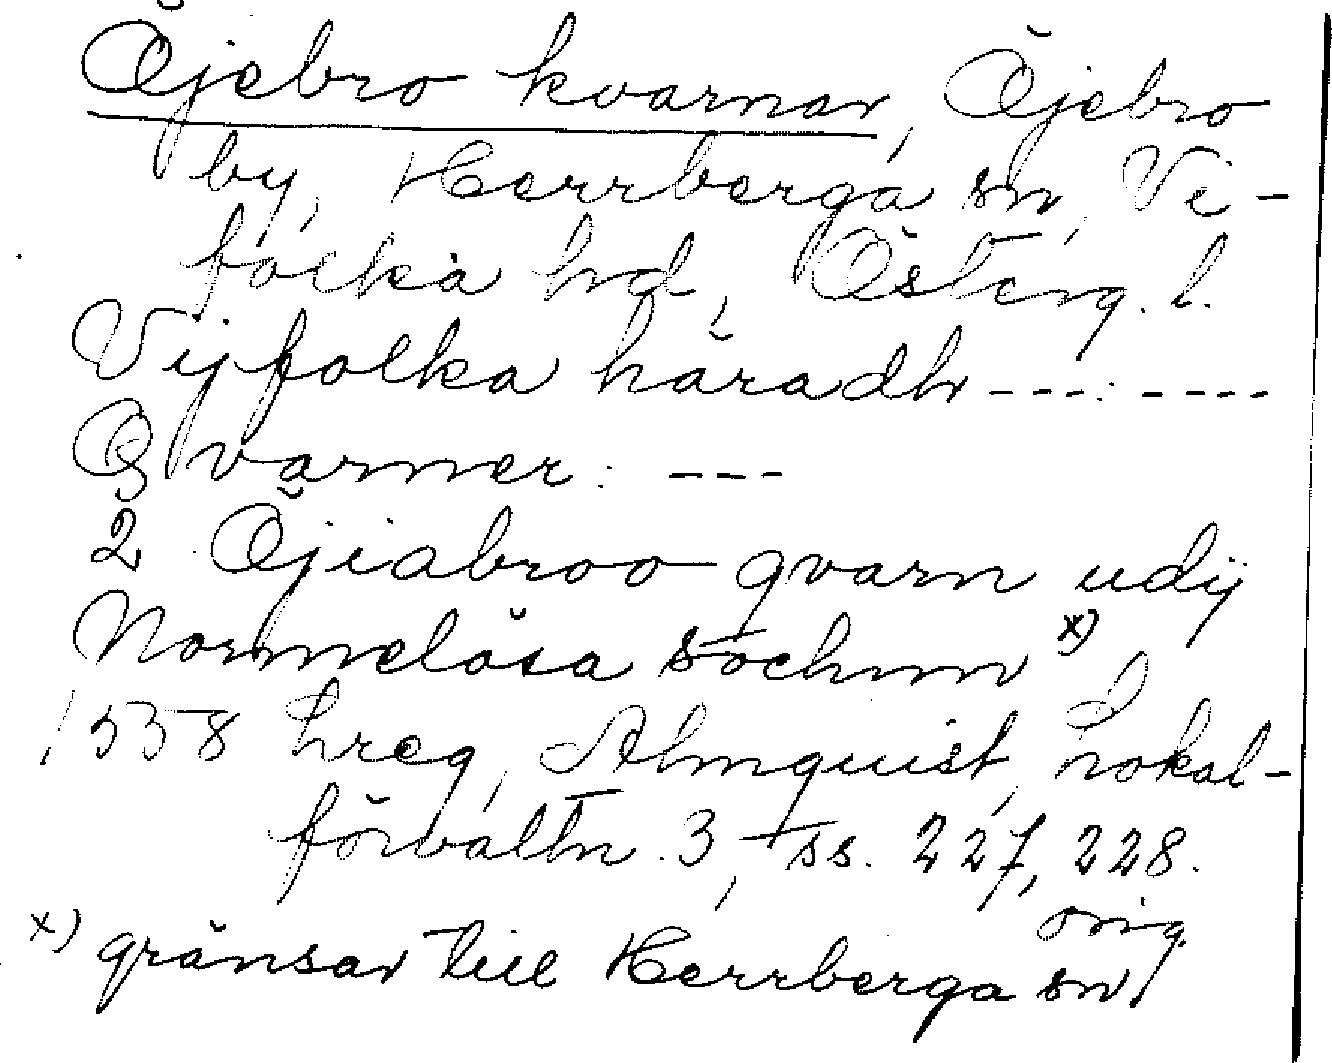 Öjebro kvarnar, Öjebro
by, Herrberga sn, Vi-
folka hd, Österg. l.
Vijfolka häradh ---:----
Qvarner: ---
2 Öjiabroo qvarn udij
Normelösa sochnn x)
1558 hreg, Almquist, Lokal-
förvaltn. 3, ss. 227, 228.
orig.
x) gränsar till Herrberga sn